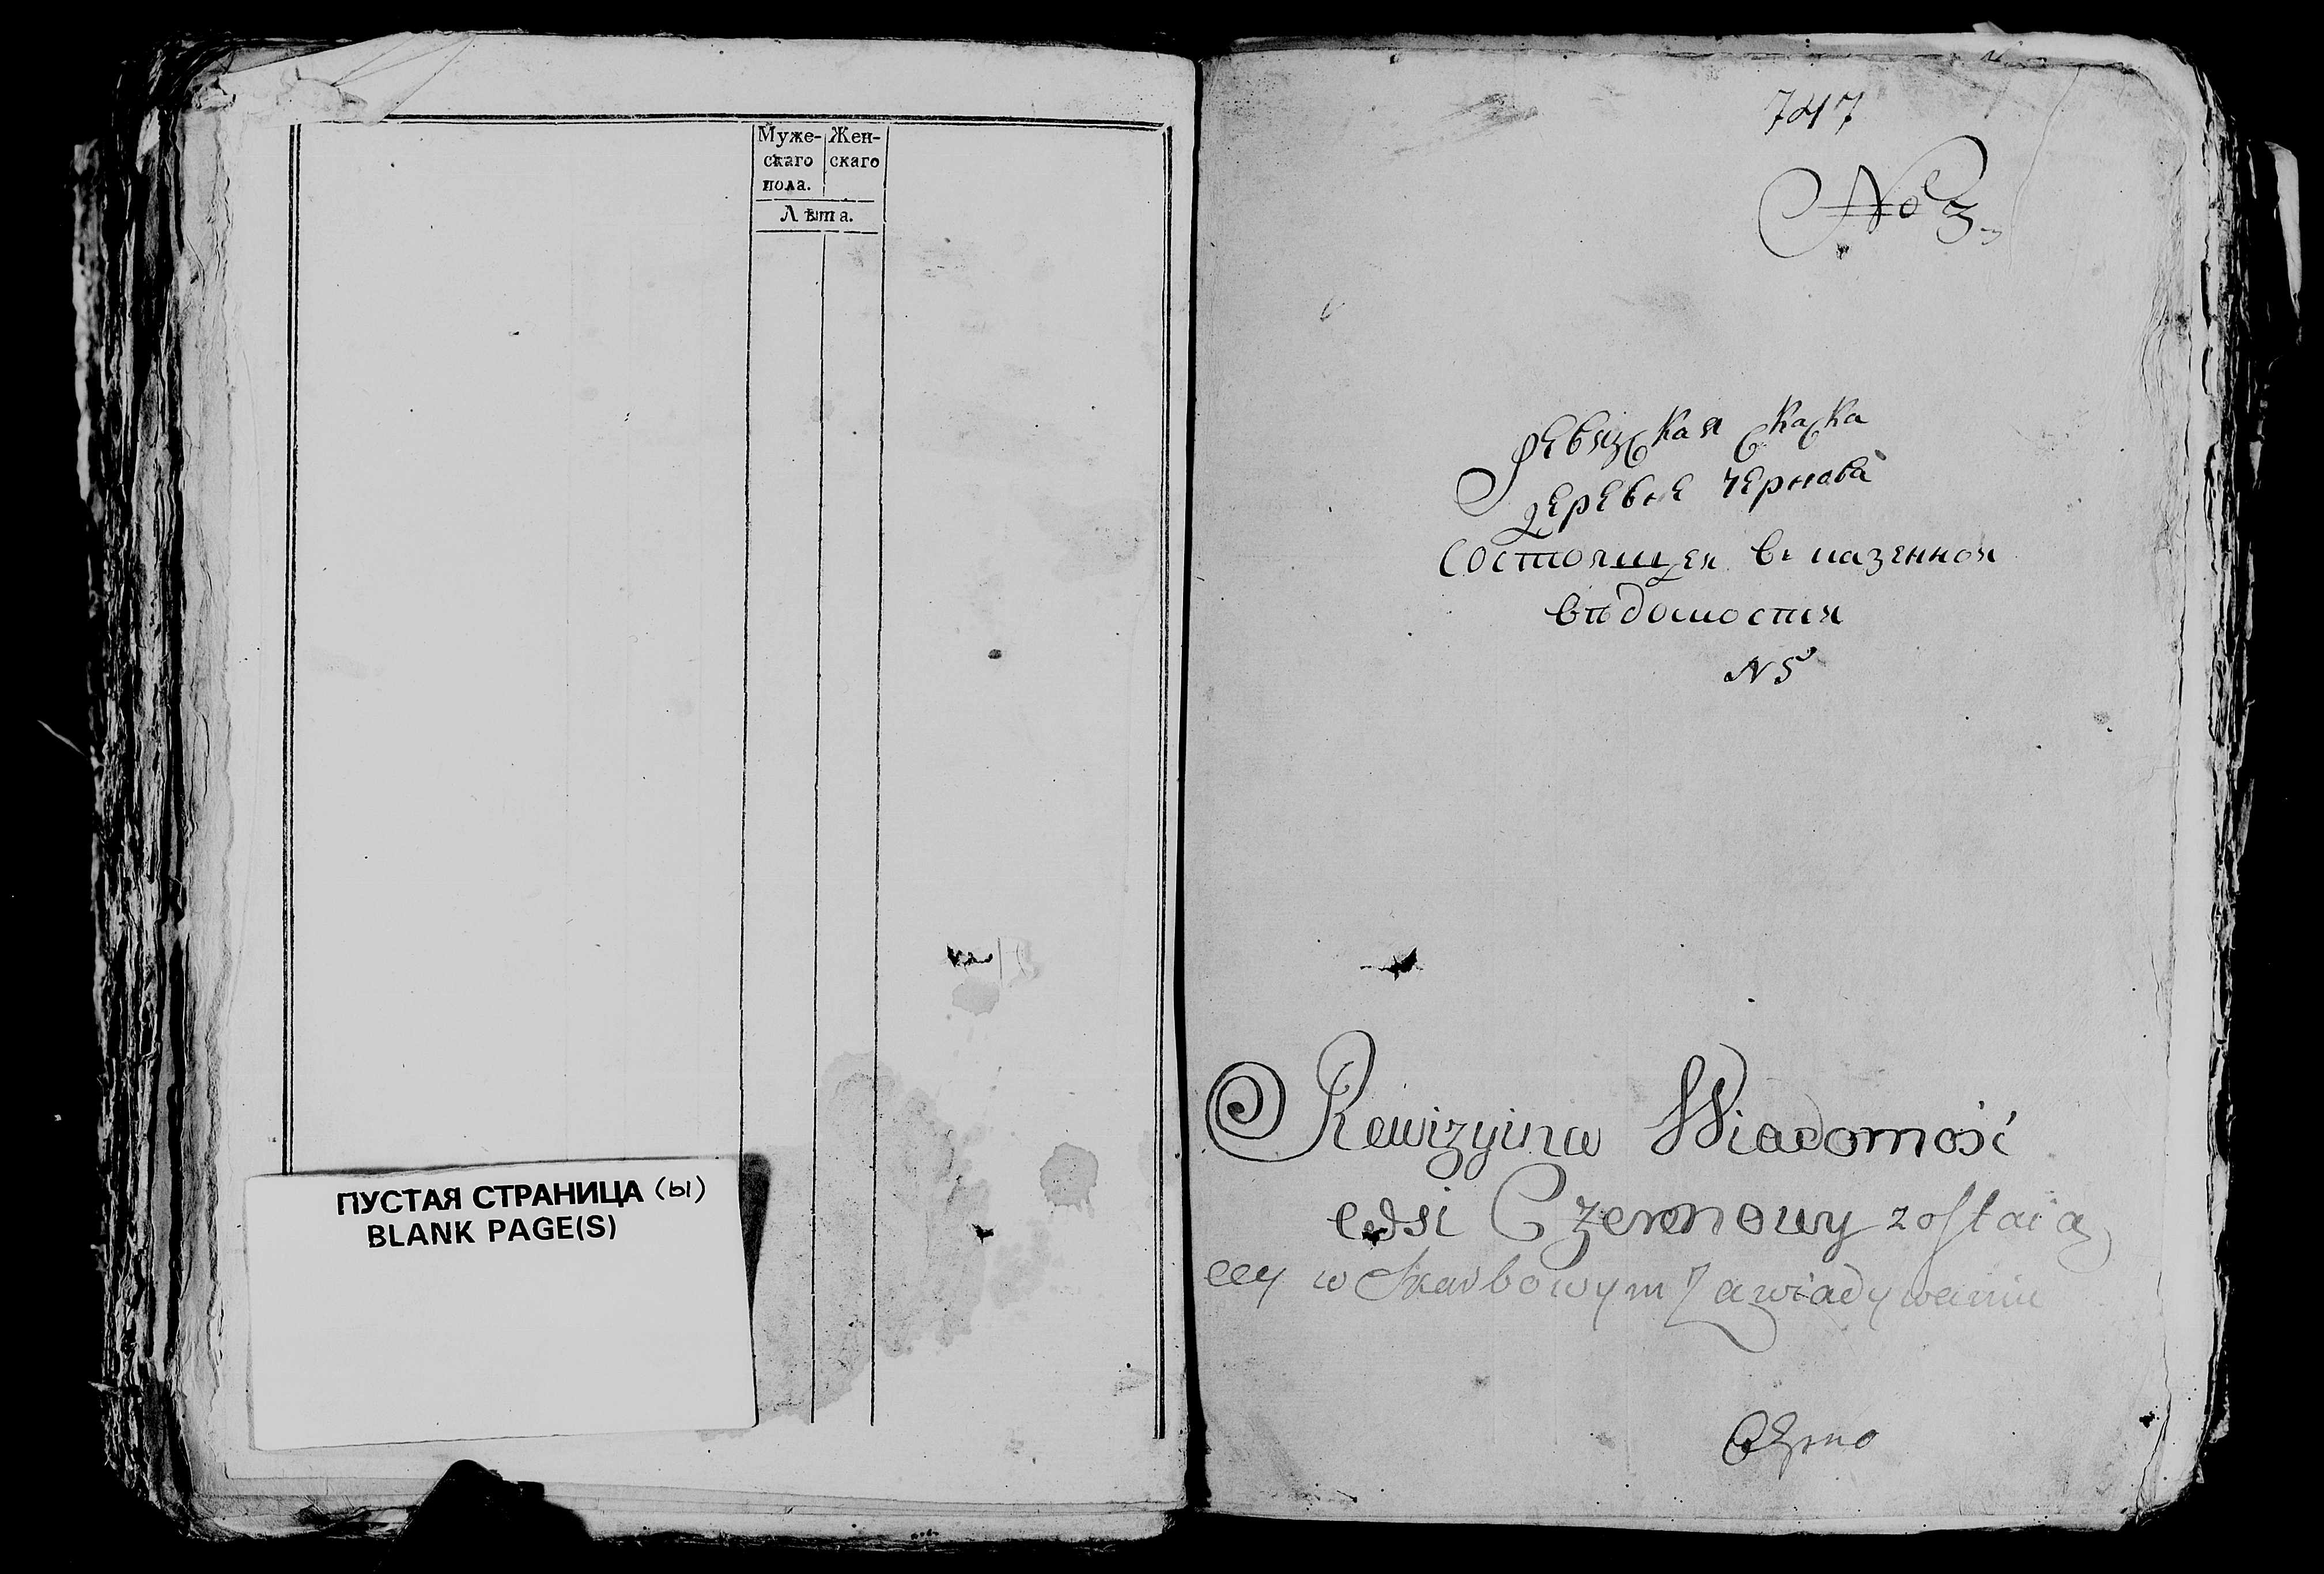 Муже-
скаго
пола.
Жен-
скаго
Лѣта.
ПУСТАЯ СТРАНИЦА (Ы)
BLANK PAGE(S)
747
No 3
Ревизская скаска
деревне чернова
состоящея въ казенной
въдомостия
N 5
Rewizyina Wiadomość
wsi Czernowy zostaią
cey w Skarbowym Zawiadywaniu